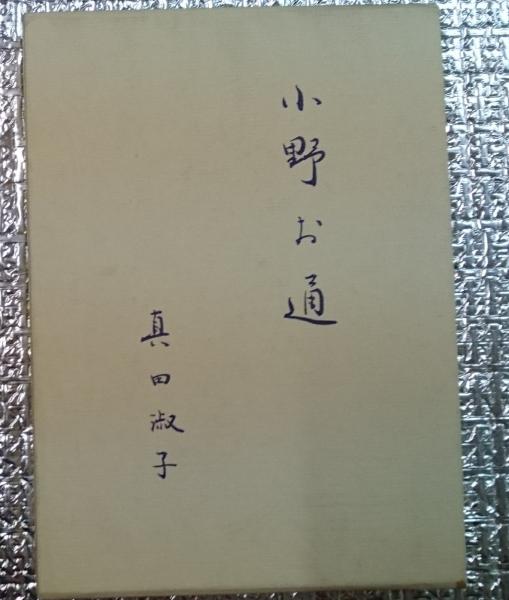 小野お通
真田淑子